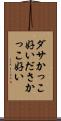 ダサかっこ
好いださか
っこ好い